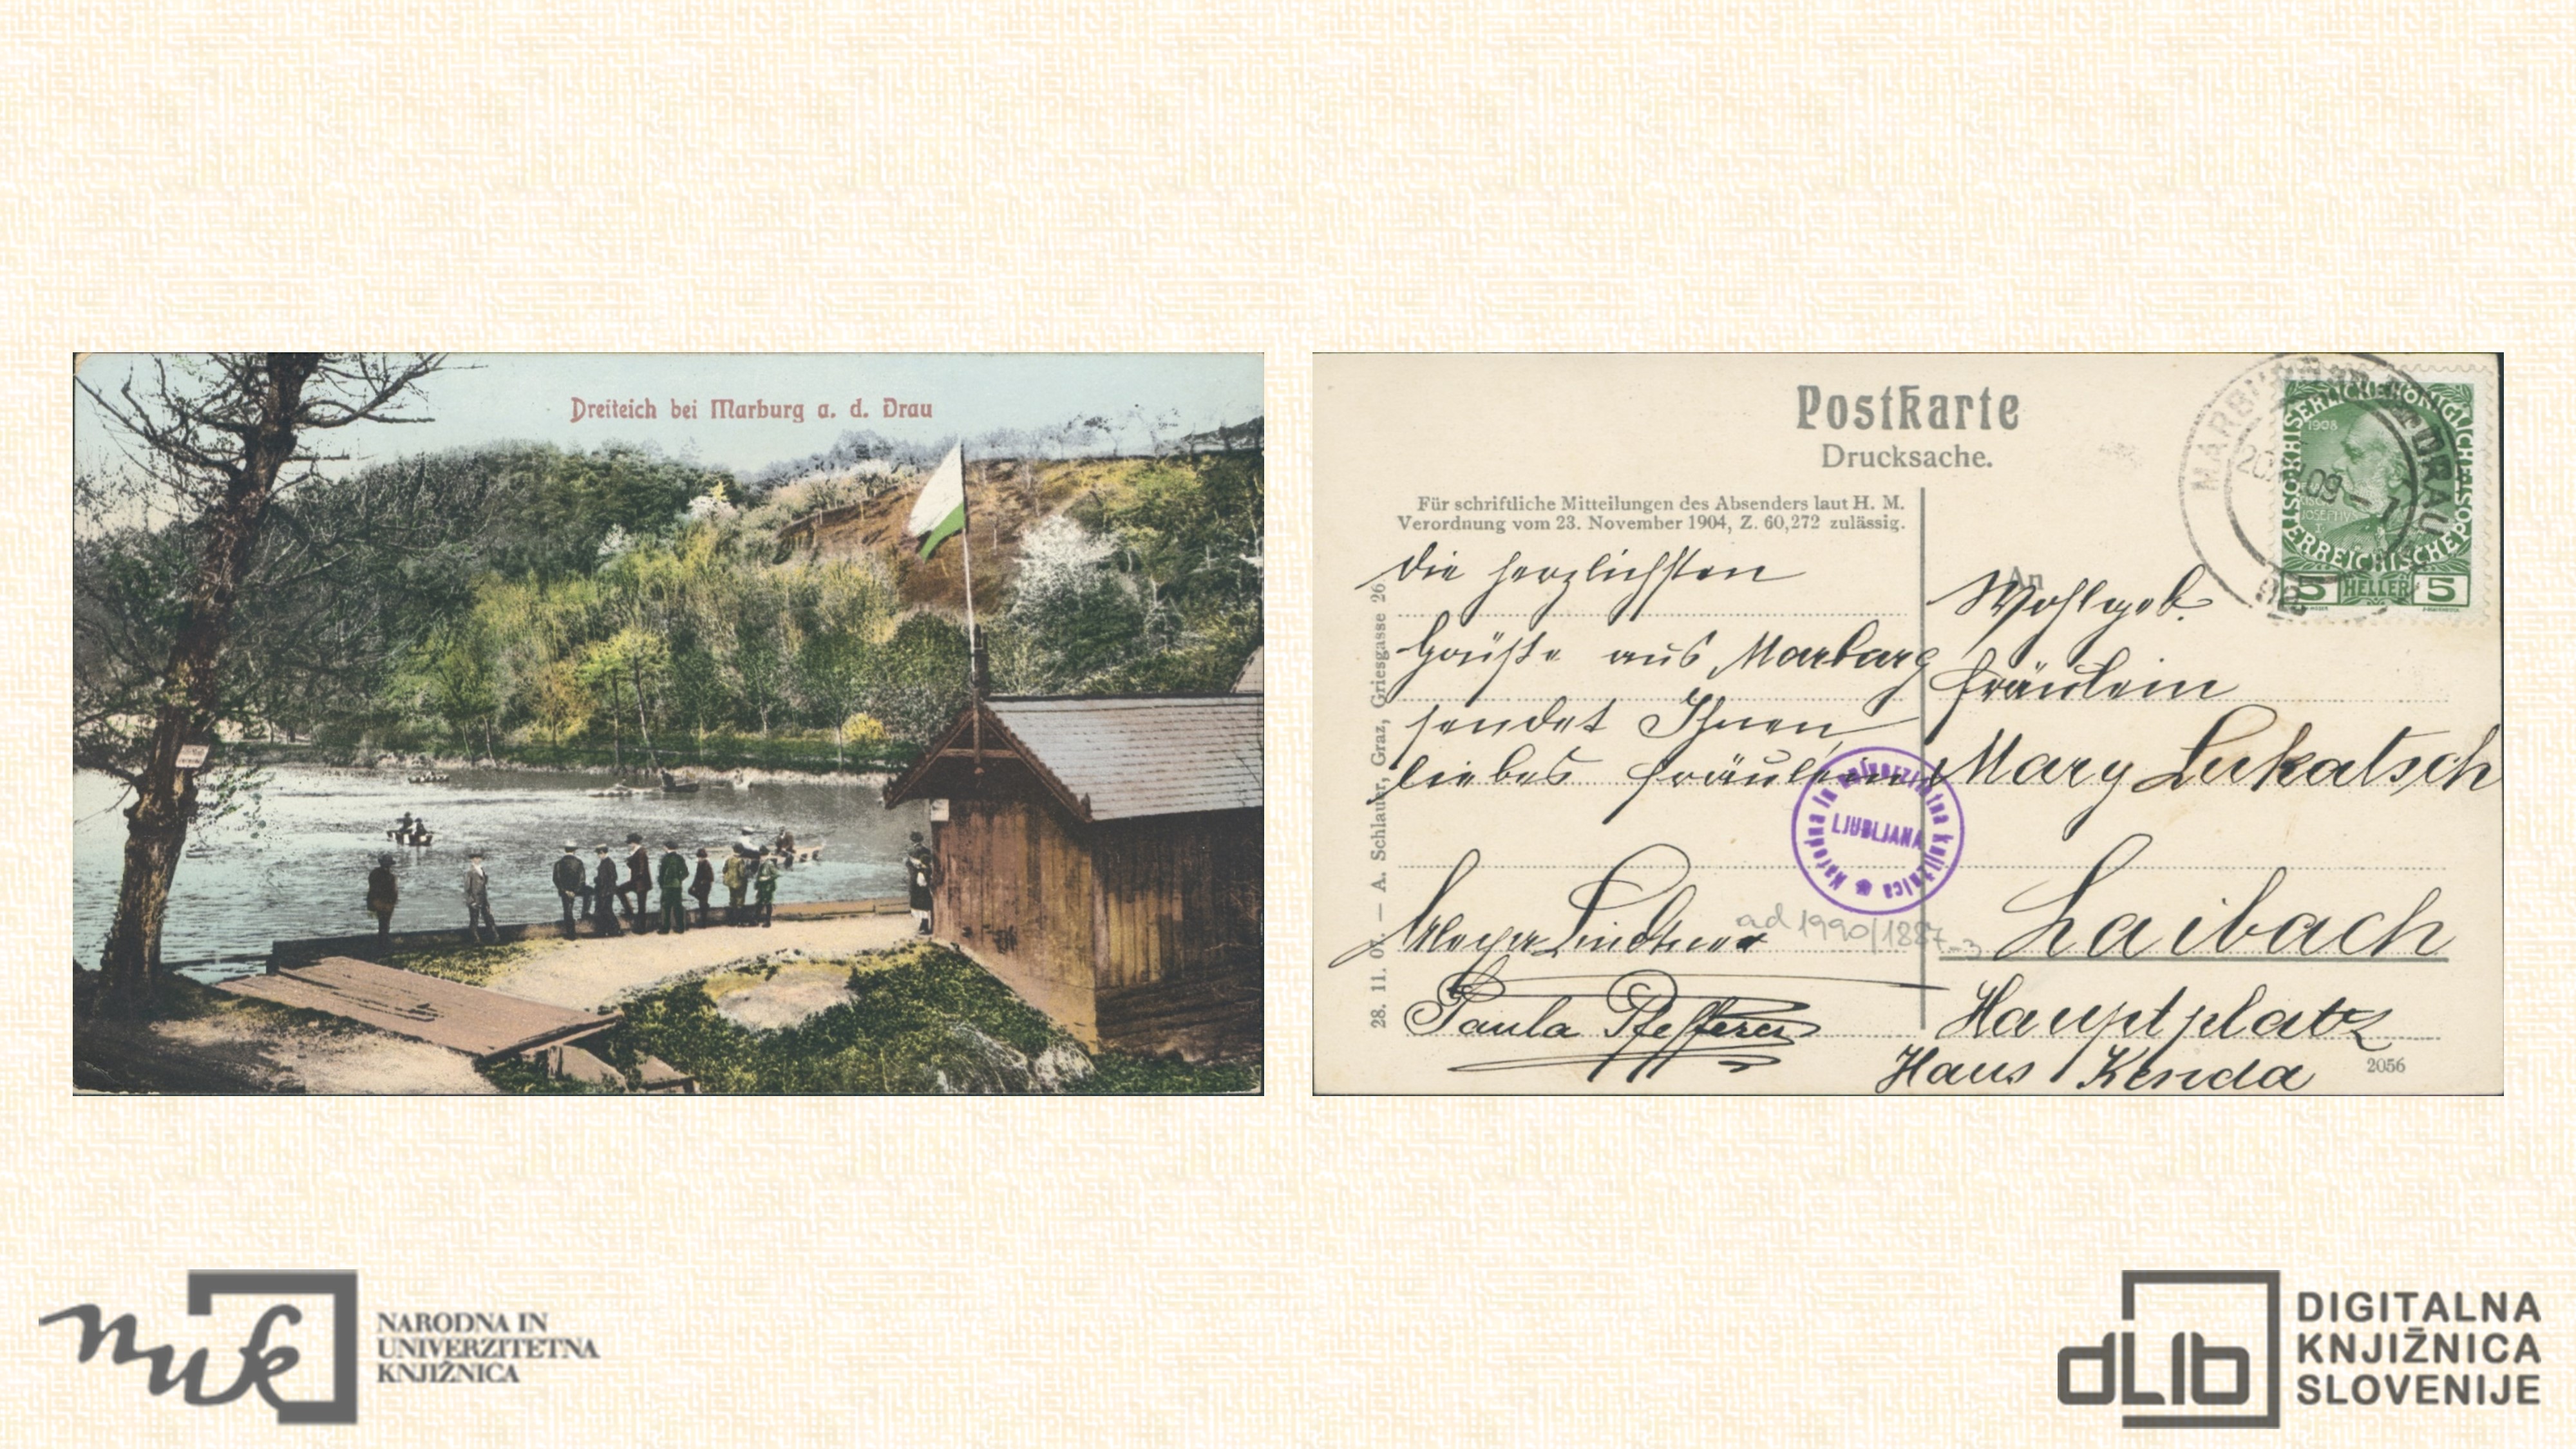 Dreiteich bei Marburg a. d. Drau
Postkarte
Drucksache.
Für schriftliche Mitteilungen des Absenders laut H. M.
Verordnung vom 23. November 1904, Z. 60,272 zulässig.
die herzlichsten
Grüße aus Marburg
sendet Ihnen
liebes Fräulein
Lindtner
Paula Pfefferer
A. Schlauer, Graz, Griesgasse 26
28. 11. 07.
An
Wohlgeb.
Fräulein
Mary Lukatsch
Laibach
Hauptplatz
Haus Kenda
2056
MARBURG DRAU
20 09
KAISERLICHE KÖNIGLICHE POST
ÖSTERREICHISCHE
1908
5 HELLER 5
Narodna in univerzitetna knjižnica
LJUBLJANA
ad 1990/1887-3
nuk
NARODNA IN
UNIVERZITETNA
KNJIŽNICA
dLib
DIGITALNA
KNJIŽNICA
SLOVENIJE